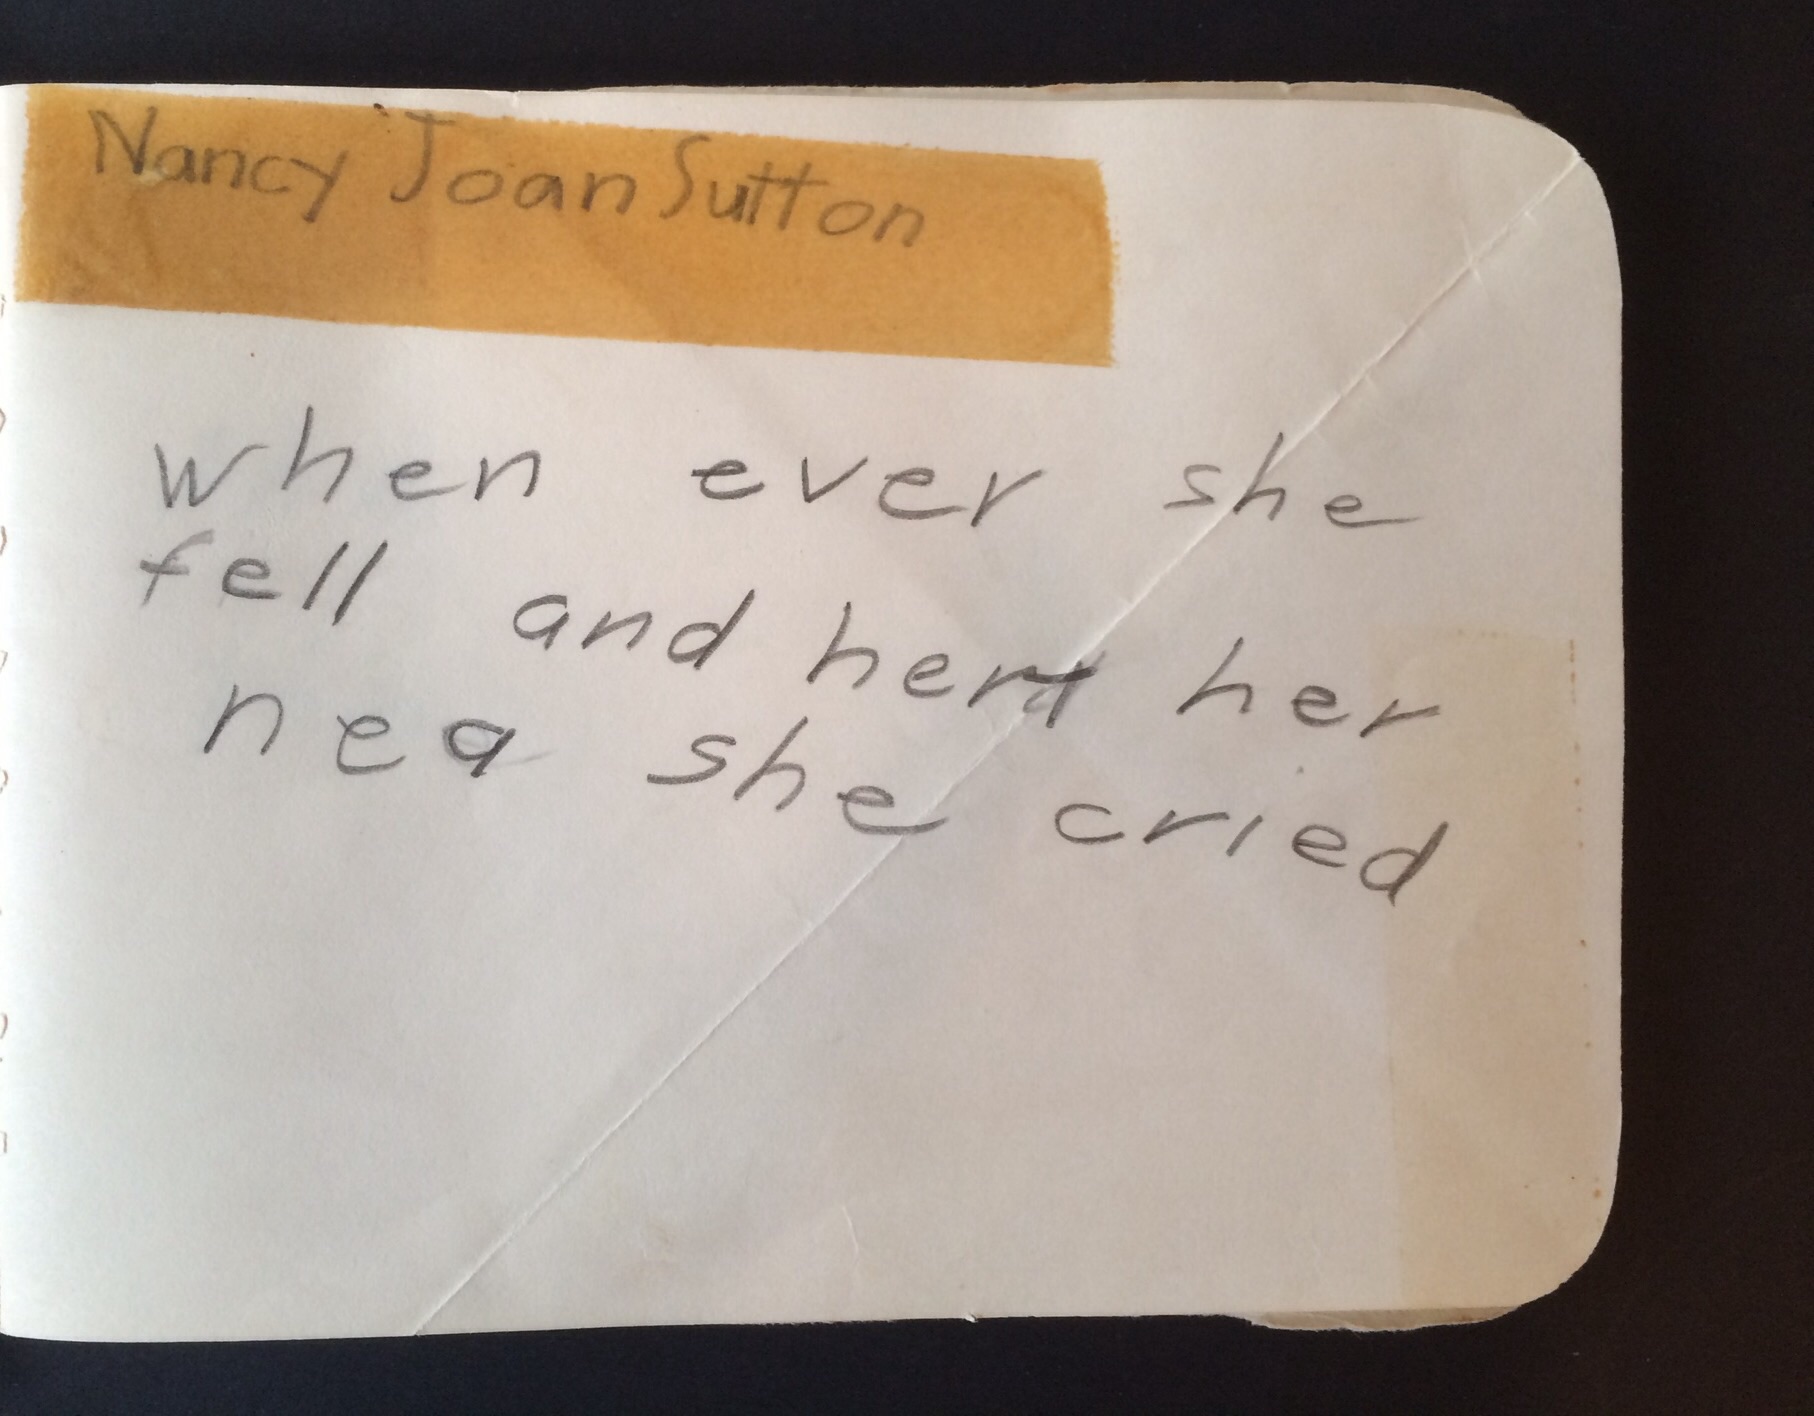 Nancy Joan Sutton
when ever she
fell and hert her
nea she cried